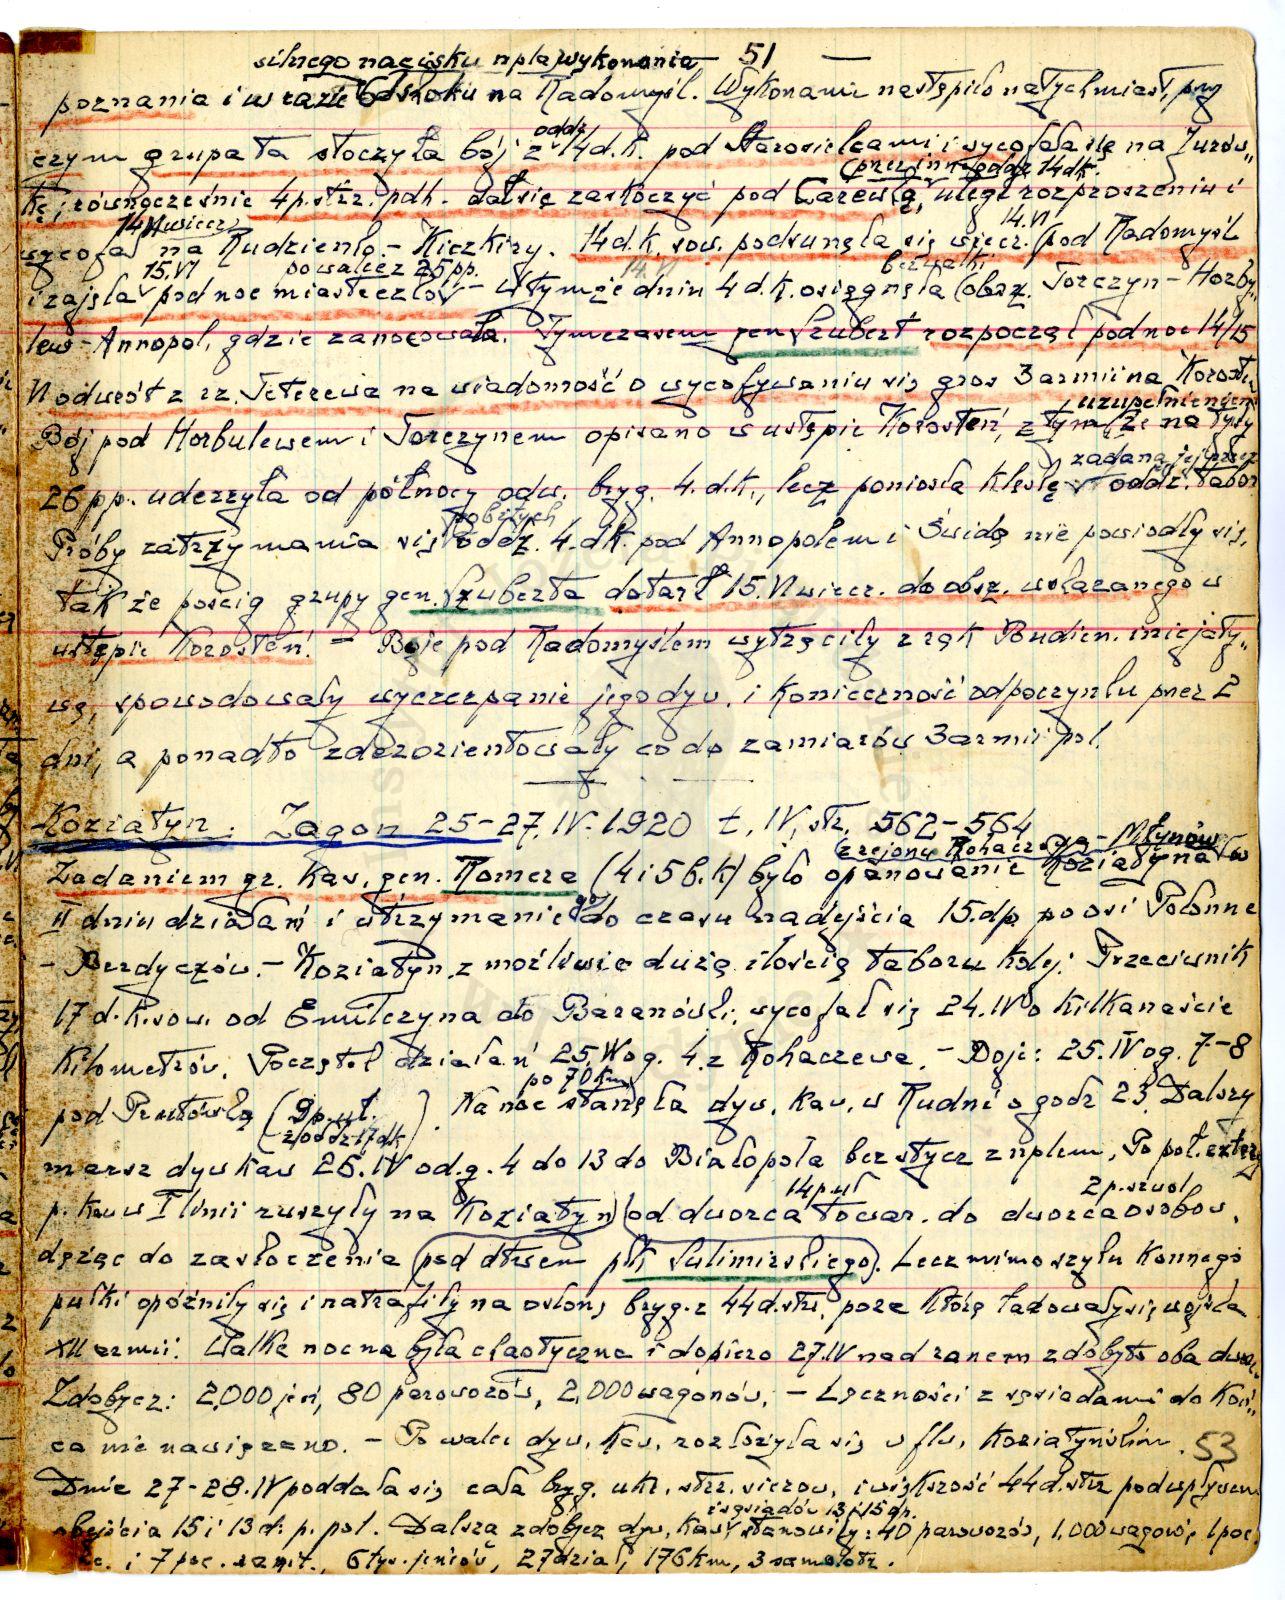 silnego nacisku npla wykonania — 51 —
poznania i w razie odskoku na Radomyśl. Wykonanie nastąpiło natychmiast, przy
czym grupa ta stoczyła bój z oddz. 14 d.k. pod Starosielcami i wycofała się na Zurów„
kę; równocześnie 4 p. strz. pdh. dał się zaskoczyć pod Carewką, (przez inne oddz. 14 dk. uległ rozproszeniu i
wycofał 14.VI wiecz. na Rudzieńko – Kiczkiry. 14 d.k. sow. podsunęła się wiecz. 14.VI (pod Radomyśl
i zajęła 15.VI pod noc miasteczko po walce z 25 pp. – W tymże dniu 14.VI 4 d.k. osiągnęła bez walki (obsz. Torczyn – Horby„
lew – Annopol, gdzie zanocowała. Tymczasem gen. Szubert rozpoczął pod noc 14/15
VI odwrót z rz. Teterewa na wiadomość o wycofywaniu się gros 3 armii na Korosteń
Bój pod Horbulewem i Torczynem opisano w ustępie Korosteń, z tym uzupełnieniem (że na tyły
26 pp. uderzyła od północy odw. bryg. 4. d.k., lecz poniosła klęskę zadaną jej przez oddz. tabor.
Próby zatrzymania się pobitych oddz. 4. dk. pod Annopolem i Świdą nie powiodły się,
tak że pościg grupy gen. Szuberta dotarł 15.VI wiecz. do obsz. wskazanego w
ustępie Korosteń. – Boje pod Radomyślem wytrąciły z rąk Budien. inicjaty„
wę, spowodowały wyczerpanie jego dyw. i konieczność odpoczynku przez 2
dni, a ponadto zdezorientowały co do zamiarów 3 armii pol.
Koziatyn: Zagon 25–27.IV.1920 t. IV, str. 562–564
Zadaniem gr. kaw. gen. Romera (4 i 5 b.k) było z rejonu Rohaczewa – Młynów opanowanie Koziatyna w
II dniu działań i utrzymanie go do czasu nadejścia 15. dp po osi Połonne
– Berdyczów. – Koziatyn z możliwie dużą ilością taboru kolej. Przeciwnik
17 d.k. sow. od Emilczyna do Baranówki, wycofał się 24.IV o kilkanaście
kilometrów. Początek działań 25.IV o g. 4 z Rohaczewa. – Boje: 25.IV o g. 7–8
pod Prutówką (9 p. uł. z oddz. 17 dk). Na noc po 70 km stanęła dyw. kaw. w Rudni o godz 23. Dalszy
marsz dyw kaw 26.IV od g. 4 do 13 do Białopola bez stycz z nplem, Po poł. cztery
p. kaw w I linii ruszyły na Koziatyn) (od dworca towar. 14 p. uł do dworca osobow. 2 p. szwol
dążąc do zaskoczenia (pod dtwem płk Sulimirskiego). Lecz mimo szyku konnego
pułki opóźniły się i natrafiły na osłonę bryg. z 44 d. strz, poza którą ładowały się wojska
XII armii. Walka nocna była chaotyczna i dopiero 27.IV nad ranem zdobyto oba dworc.
Zdobycz: 2.000 jeń, 80 parowozów, 2.000 wagonów. – Łączności z sąsiadami do koń„
ca nie nawiązano. – Po walce dyw. kaw. rozłożyła się w flw. Koziatyńskim. 53
Dnie 27–28.IV poddała się cała bryg. ukr. strz. siczow. i większość 44 d. strz pod wpływem
obejścia 15 i 13 d. p. pol. Dalszą zdobycz dyw. kaw i sąsiadów 13 i 15 dp. stanowiły: 40 parowozów, 1.000 wagonów, 1 poc.
i 7 poc. sanit., 6 tys. jeńców, 27 dział, 176 km, 3 samolotr.